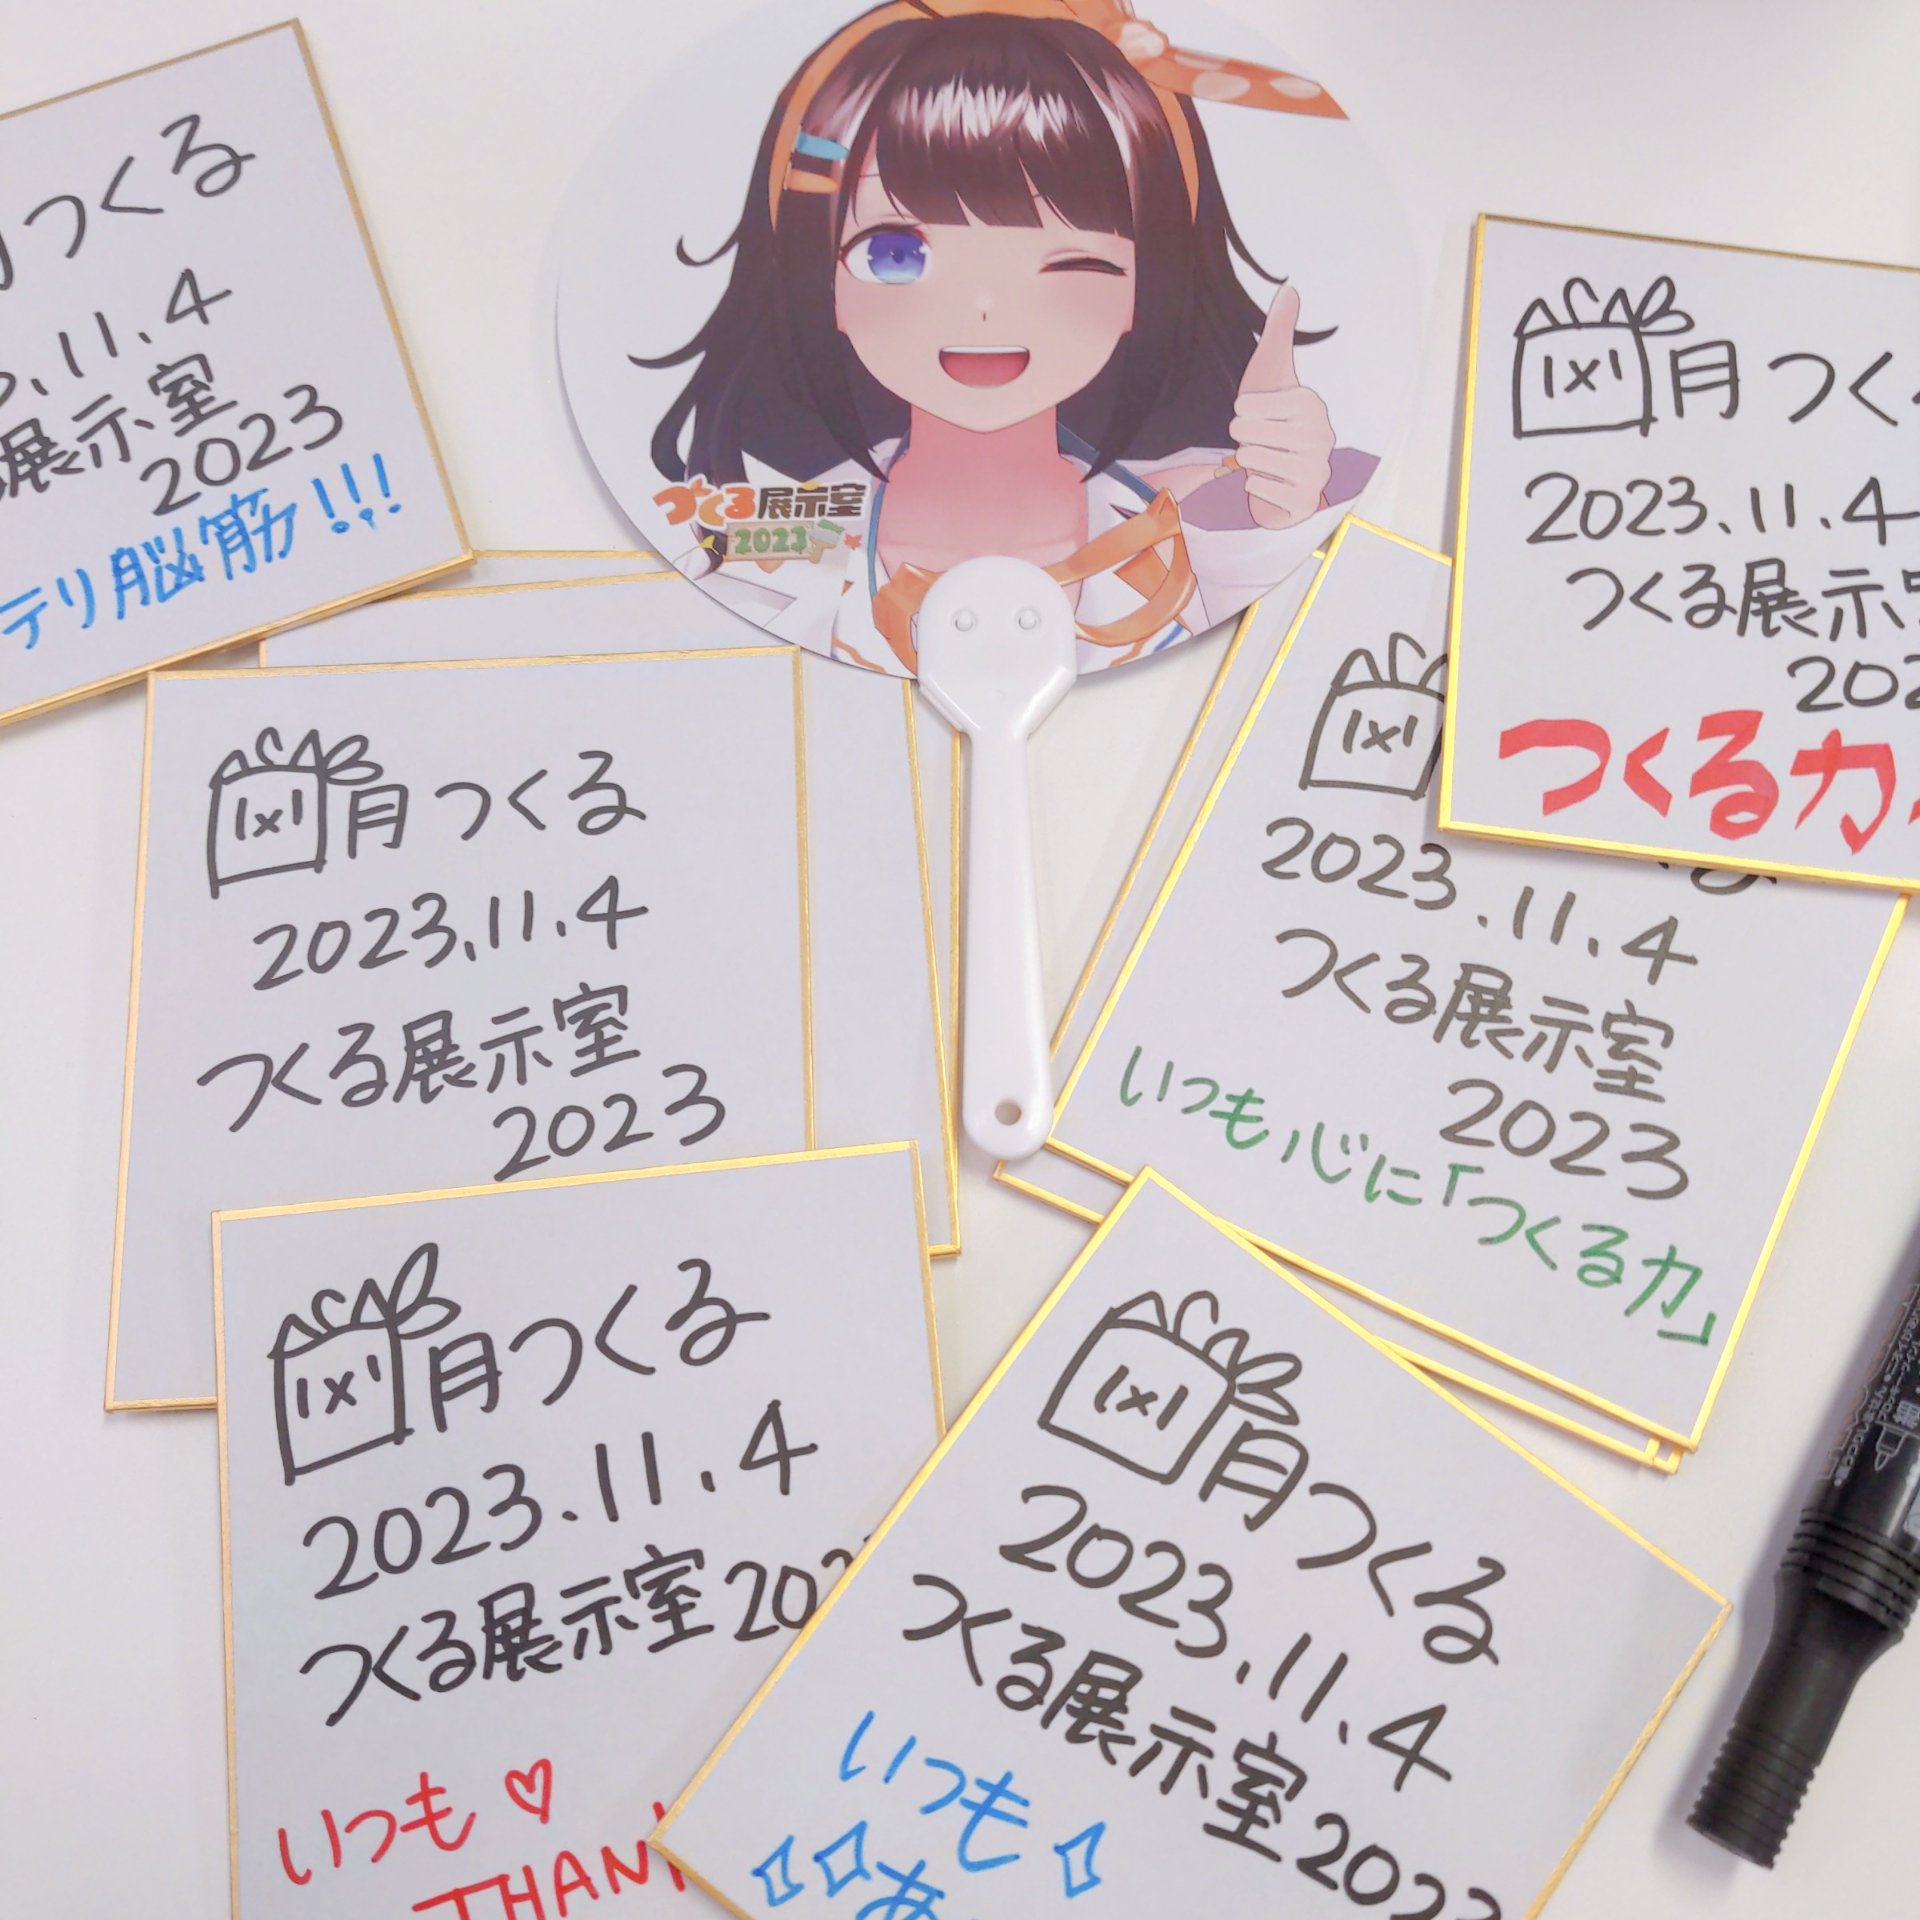 つくる
11.4
展示室
2023
テリ脳筋!!!
つくる展示室
2023
月つく
2023.11.4
つくる展示
つくる力
月つくる
2023.11.4
つくる展示室
2023
2023.11.4
つくる展示室
2023
いつも心に「つくる力」
月つくる
2023.11.4
つくる展示室
いつも♡
月つくる
2023.11.4
つくる展示室2023
いつも